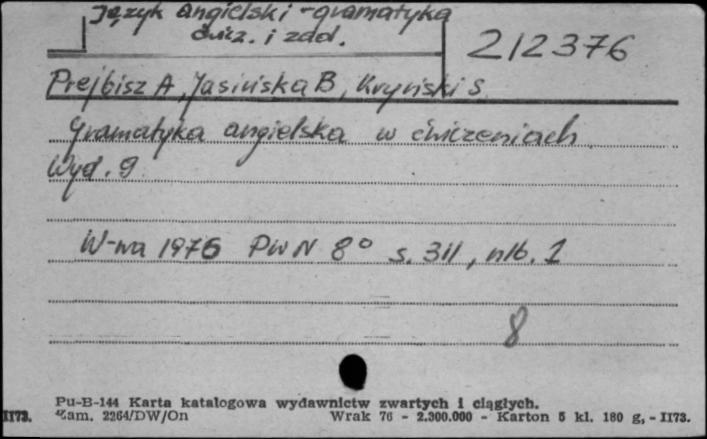 Język angielski - gramatyka
ćwicz. i zad.
212376
Prejbisz A, Jasińska B, Kryński S.
Gramatyka angielska w ćwiczeniach
Wyd. 9
W-wa 1976 PWN 8° s. 311, nlb. 1
8
Pu-B-144 Karta katalogowa wydawnictw zwartych i ciągłych.
II73. Zam. 2264/DW/On Wrak 76 - 2.300.000 - Karton 5 kl. 180 g, - II73.